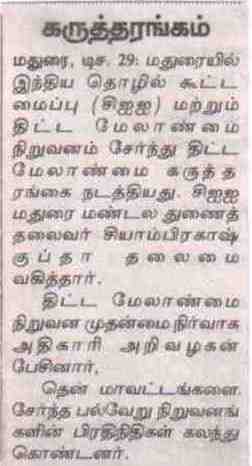 கருத்தரங்கம்
மதுரை, டிச. 29: மதுரையில்
இந்திய தொழில் கூட்ட
மைப்பு (சிஐஐ) மற்றும்
திட்ட மேலாண்மை
நிறுவனம் சேர்ந்து திட்ட
மேலாண்மை கருத்த
ரங்கை நடத்தியது. சிஐஐ
மதுரை மண்டல துணைத்
தலைவர் சியாம்பிரகாஷ்
குப்தா தலைமை
வகித்தார்.
திட்ட மேலாண்மை
நிறுவன முதன்மை நிர்வாக
அதிகாரி அறிவழகன்
பேசினார்.
தென் மாவட்டங்களை
சேர்ந்த பல்வேறு நிறுவனங்
களின் பிரதிநிதிகள் கலந்து
கொண்டனர்.